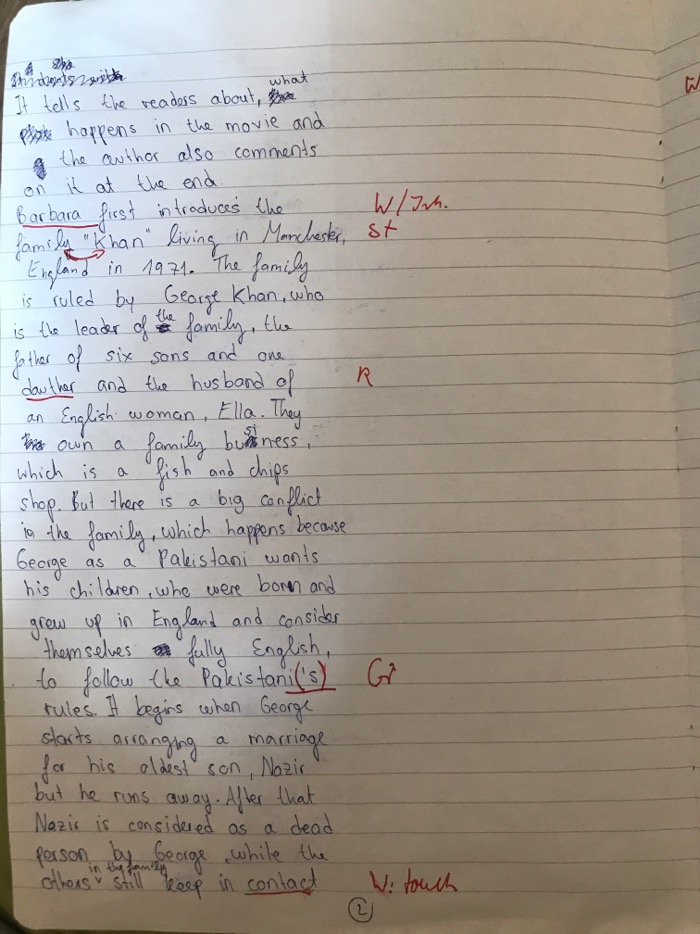 It tells the readers about, what
happens in the movie and
the author also comments
on it at the end.
Barbara first introduces the W/Inh.
family "Khan" living in Manchester, st
England in 1971. The family
is ruled by George Khan, who
is the leader of the family, the
father of six sons and one
dauther and the husband of R
an English woman, Ella. They
own a family business,
which is a fish and chips
shop. But there is a big conflict
in the family, which happens because
George as a Pakistani wants
his children, who were born and
grew up in England and consider
themselves fully English,
to follow the Pakistani('s) Gr
rules. It begins when George
starts arranging a marriage
for his oldest son, Nazir
but he runs away. After that
Nazir is considered as a dead
person by George, while the
others in the family still keep in contact W: touch
2